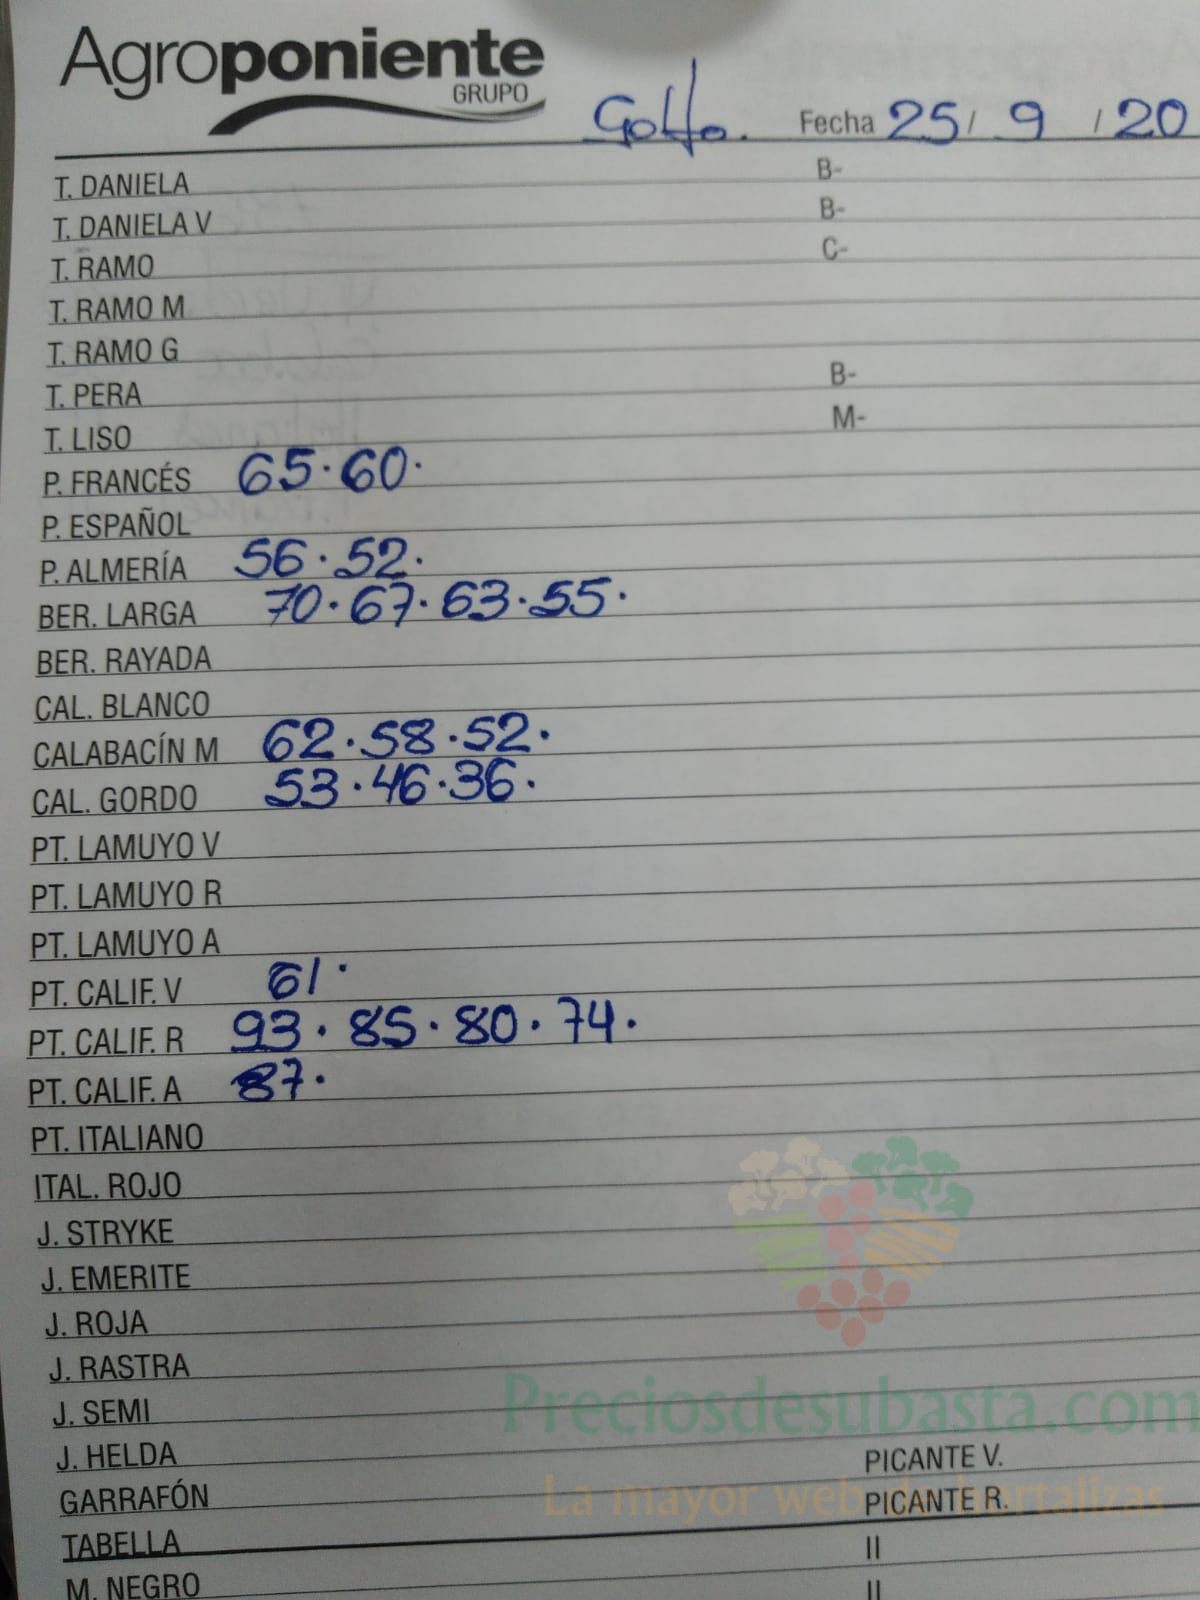 Agroponiente
GRUPO
Golfo. Fecha 25/ 9 / 20
T. DANIELA B-
T. DANIELA V B-
T. RAMO C-
T. RAMO M
T. RAMO G
T. PERA B-
T. LISO M-
P. FRANCÉS 65.60.
P. ESPAÑOL
P. ALMERÍA 56.52.
BER. LARGA 70.67.63.55.
BER. RAYADA
CAL. BLANCO
CALABACÍN M 62.58.52.
CAL. GORDO 53.46.36.
PT. LAMUYO V
PT. LAMUYO R
PT. LAMUYO A
PT. CALIF. V 61.
PT. CALIF. R 93.85.80.74.
PT. CALIF. A 87.
PT. ITALIANO
ITAL. ROJO
J. STRYKE
J. EMERITE
J. ROJA
J. RASTRA
Preciosdesubasta.com
J. SEMI
J. HELDA PICANTE V.
La mayor web de hortalizas
GARRAFÓN PICANTE R.
TABELLA II
M. NEGRO II